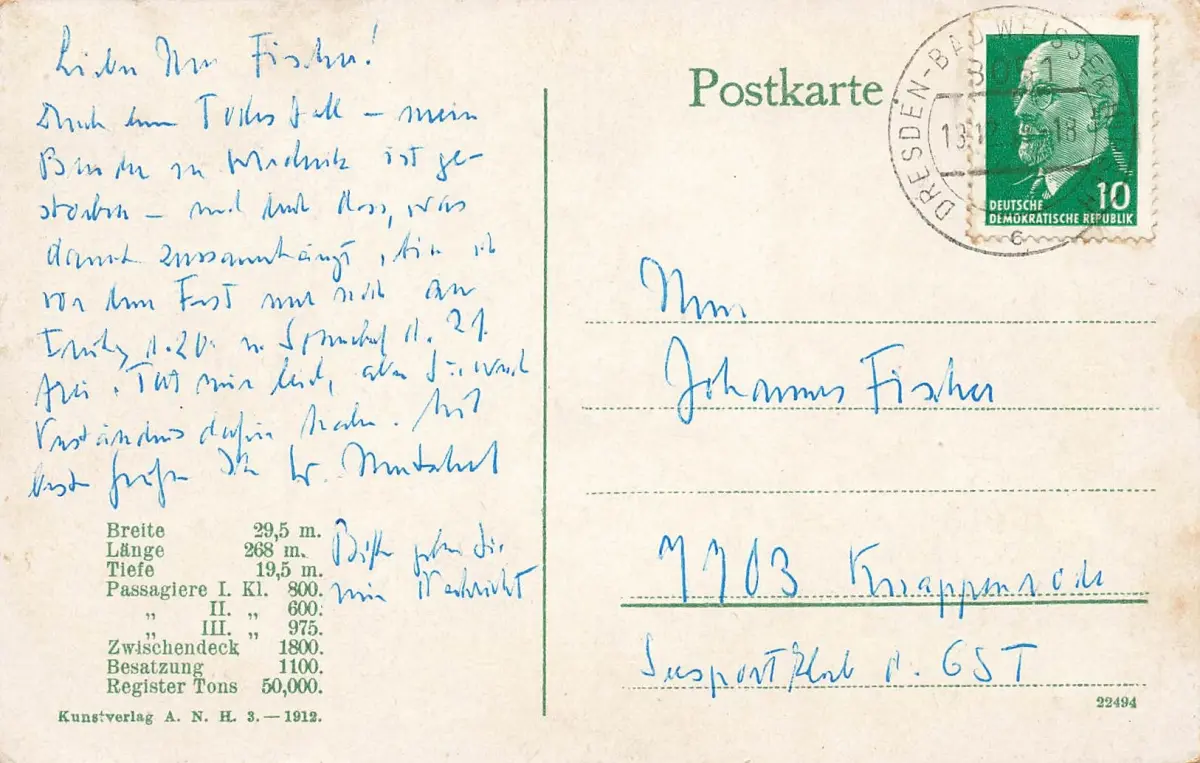 Lieber Herr Fischer!
Durch einen Todesfall – mein
Bruder in ist ge-
storben – und durch das, was
damit zusammenhängt, bin ich
vor dem Fest nur noch am
Freitag d. 20. u. Sonnabend d. 21.
frei. Tut mir leid, aber Sie werden
Verständnis dafür haben. Mit
besten Grüßen Ihr W.
Bitte geben Sie
mir Nachricht
Breite 29,5 m.
Länge 268 m.
Tiefe 19,5 m.
Passagiere I. Kl. 800.
„ II. „ 600.
„ III. „ 975.
Zwischendeck 1800.
Besatzung 1100.
Register Tons 50,000.
Kunstverlag A. N. H. 3. — 1912.
Postkarte
DRESDEN-BAD WEISSER HIRSCH
8051
c
10
DEUTSCHE
DEMOKRATISCHE REPUBLIK
Herrn
Johannes Fischer
7703 Knappenrode
Seesportklub d. GST
22494